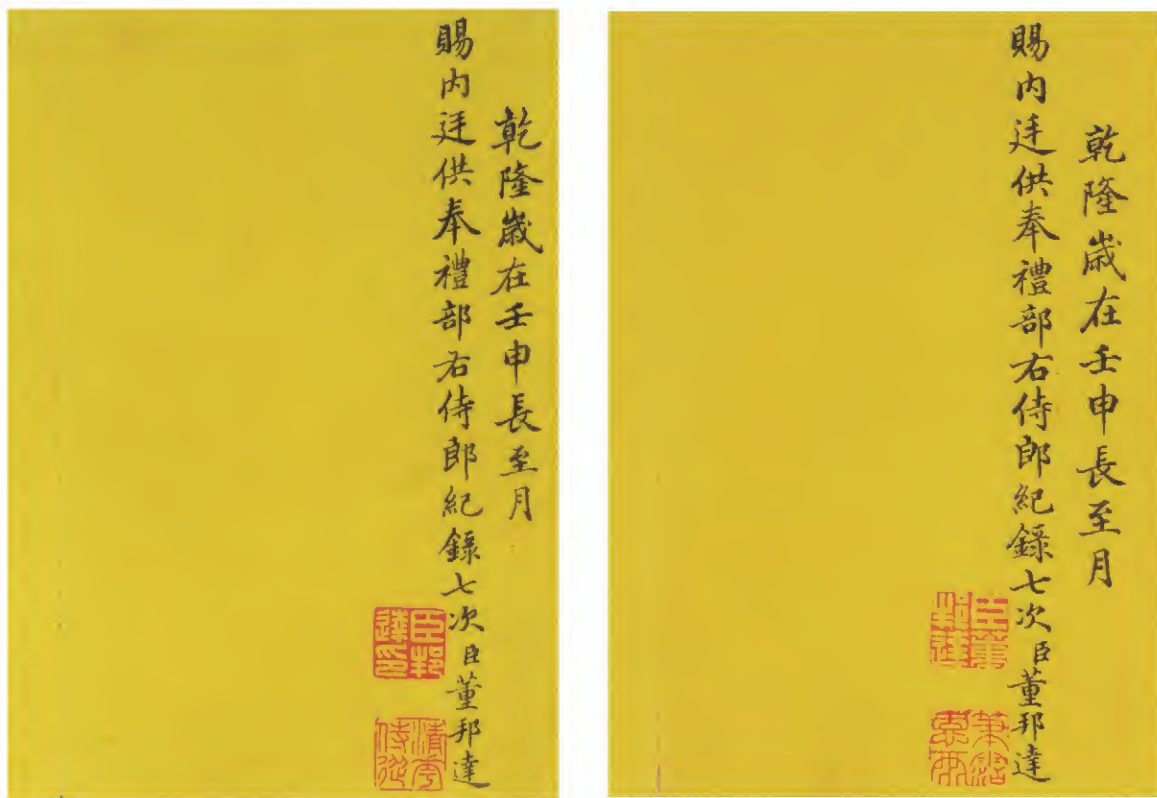 乾隆歲在壬申長至月
賜内廷供奉禮部右侍郎紀錄七次臣董邦達
臣邦達印
乾隆歲在壬申長至月
賜内廷供奉禮部右侍郎紀錄七次臣董邦達
臣董邦達